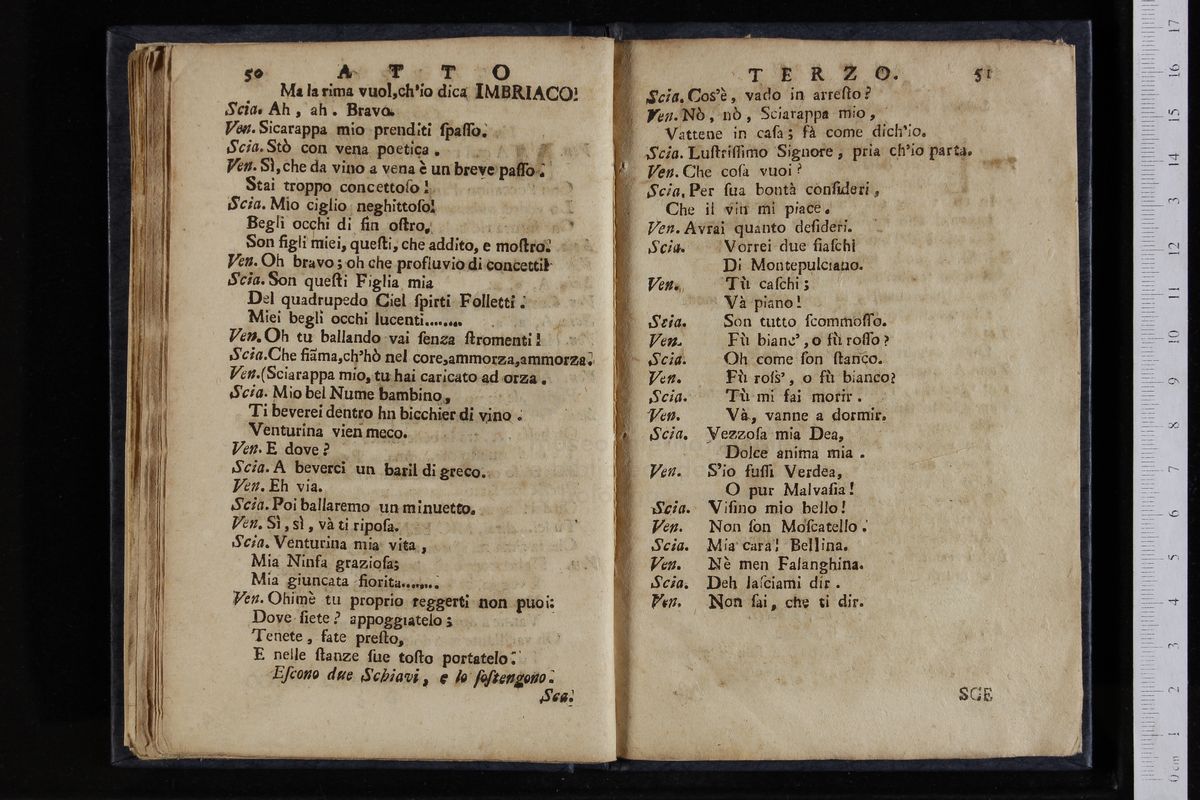 50 A T T O
Ma la rima vuol,ch'io dica IMBRIACO!
Scia. Ah, ah. Bravo.
Ven. Sicarappa mio prenditi ſpaſſo.
Scia. Stò con vena poetica.
Ven. Sì, che da vino a vena è un breve paſſo.
Stai troppo concettoſo!
Scia. Mio ciglio neghittoſo!
Begli occhi di fin oſtro,
Son figli miei, queſti, che addito, e moſtro.
Ven. Oh bravo; oh che profluvio di concetti!
Scia. Son queſti Figlia mia
Del quadrupedo Ciel ſpirti Folletti.
Miei begli occhi lucenti........
Ven. Oh tu ballando vai ſenza ſtromenti!
Scia. Che fiãma, ch'hò nel core, ammorza, ammorza.
Ven. (Sciarappa mio, tu hai caricato ad orza.
Scia. Mio bel Nume bambino,
Ti beverei dentro hn bicchier di vino.
Venturina vien meco.
Ven. E dove?
Scia. A beverci un baril di greco.
Ven. Eh via.
Scia. Poi ballaremo un minuetto.
Ven. Sì, sì, và ti ripoſa.
Scia. Venturina mia vita,
Mia Ninfa grazioſa;
Mia giuncata fiorita........
Ven. Ohimè tu proprio reggerti non puoi:
Dove ſiete? appoggiatelo;
Tenete, fate preſto,
E nelle ſtanze ſue toſto portatelo.
Eſcono due Schiavi, e lo ſoſtengono.
Sca.
T E R Z O. 51
Scia. Cos'è, vado in arreſto?
Ven. Nò, nò, Sciarappa mio,
Vattene in caſa; fà come dich'io.
Scia. Luſtriſſimo Signore, pria ch'io parta.
Ven. Che coſa vuoi?
Scia. Per ſua bontà conſideri,
Che il vin mi piace.
Ven. Avrai quanto deſideri.
Scia. Vorrei due fiaſchi
Di Montepulciano.
Ven. Tù caſchi;
Và piano!
Scia. Son tutto ſcommoſſo.
Ven. Fù bianc', o fù roſſo?
Scia. Oh come ſon ſtanco.
Ven. Fù roſs', o fù bianco?
Scia. Tù mi fai morir.
Ven. Và, vanne a dormir.
Scia. Vezzoſa mia Dea,
Dolce anima mia.
Ven. S'io fuſſi Verdea,
O pur Malvaſia!
Scia. Viſino mio bello!
Ven. Non ſon Moſcatello.
Scia. Mia cara! Bellina.
Ven. Nè men Falanghina.
Scia. Deh laſciami dir.
Ven. Non ſai, che ti dir.
SCE